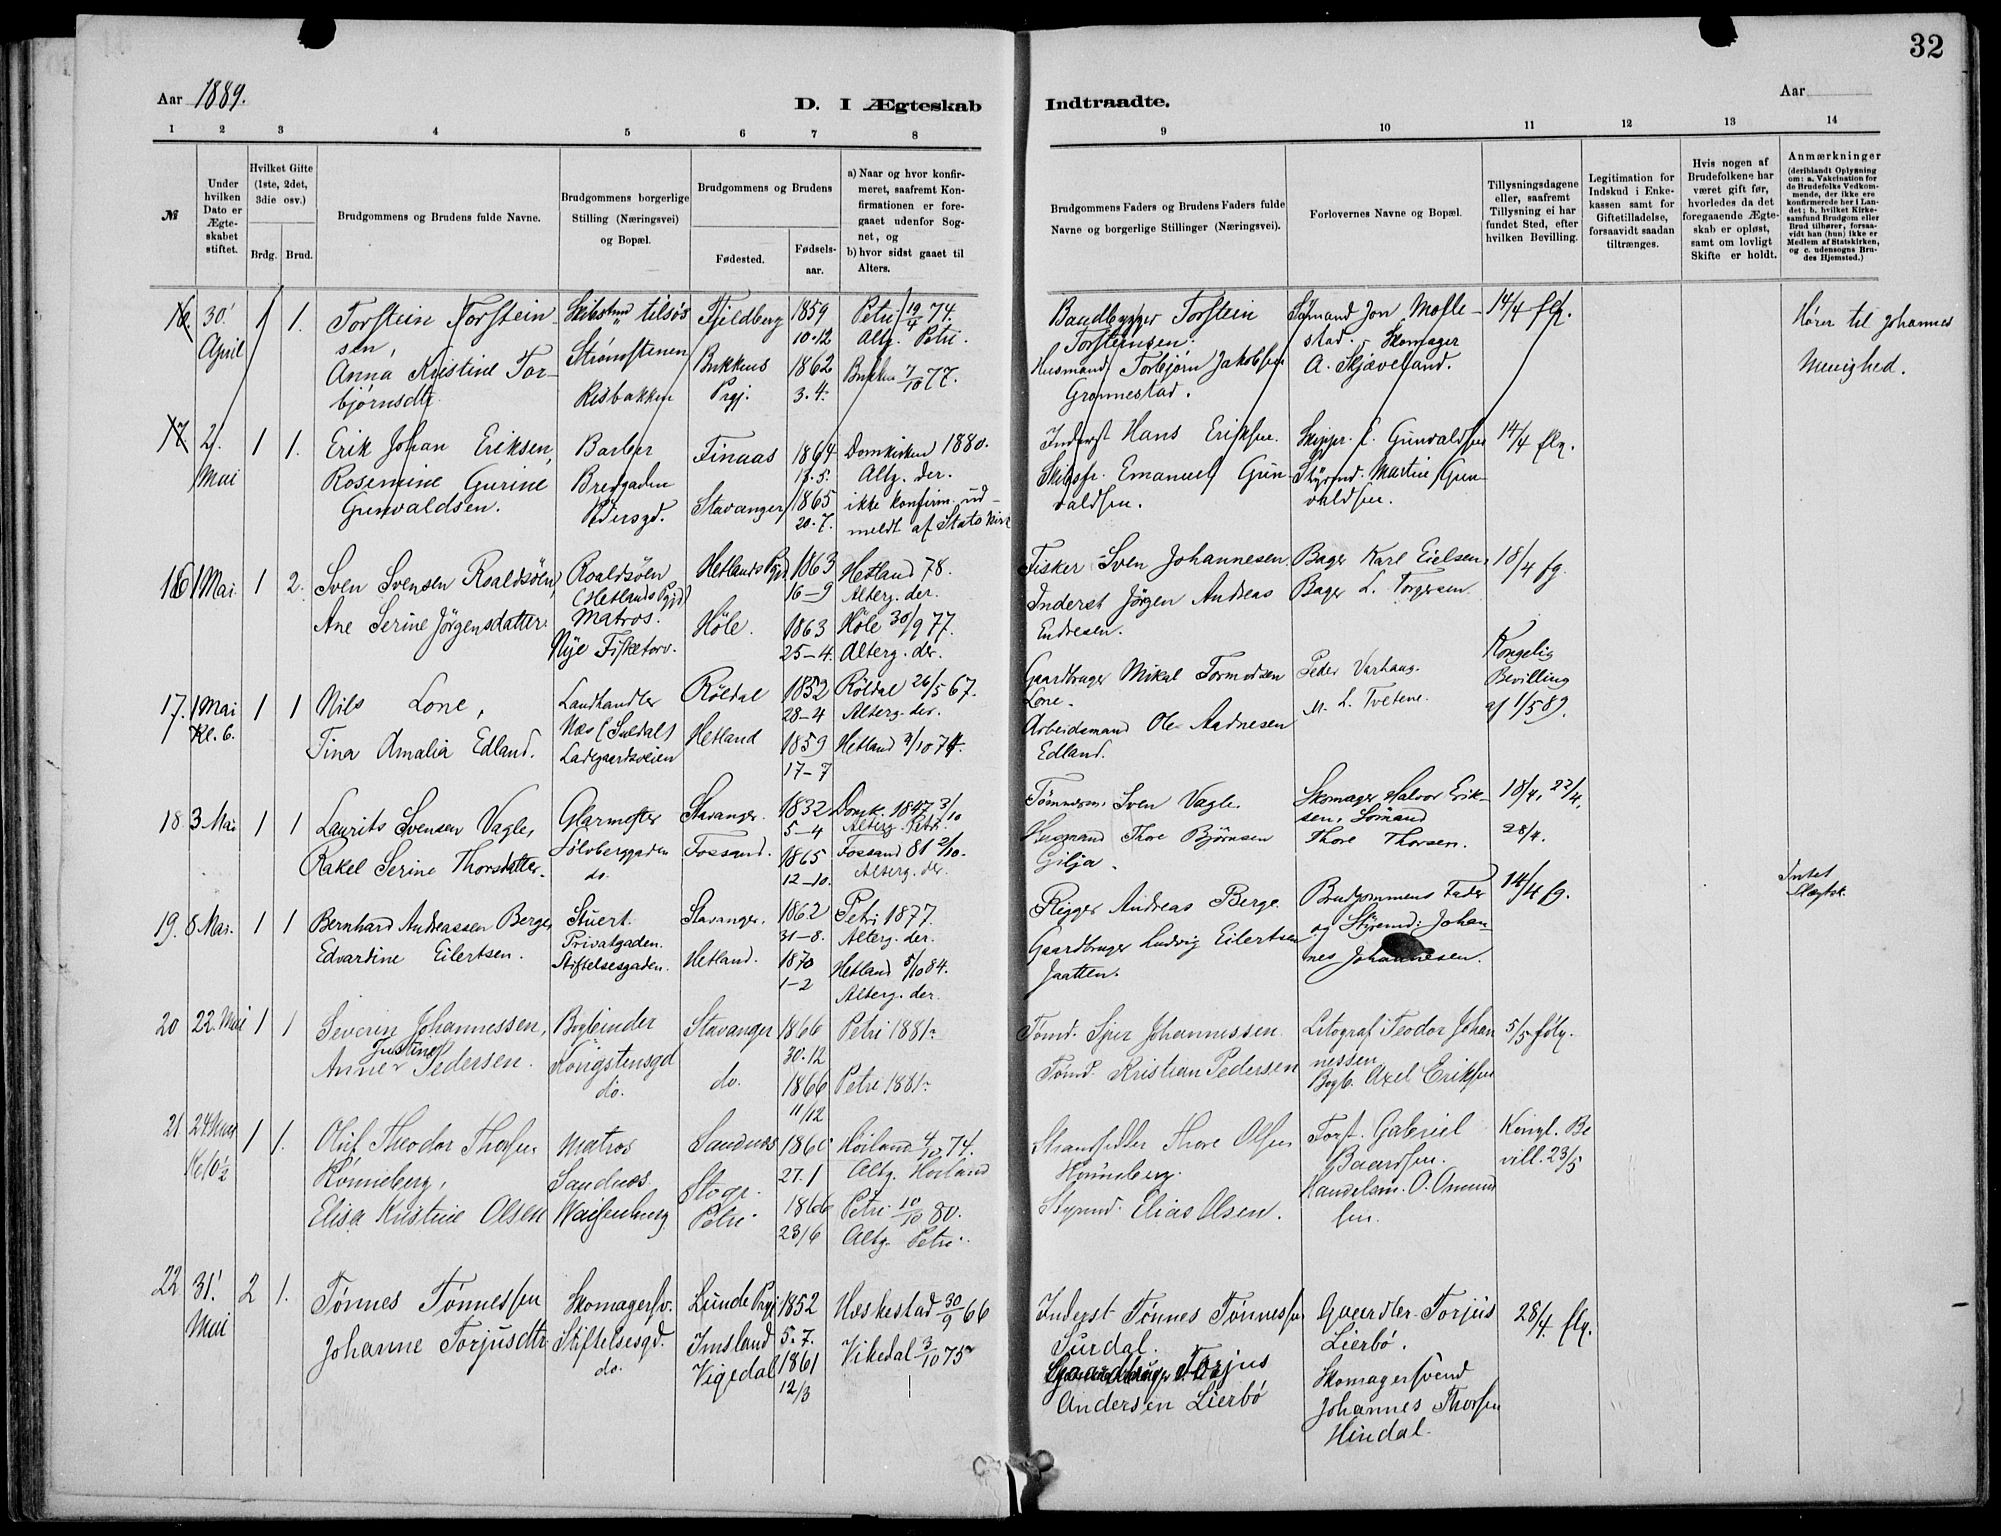 32
Aar 1889.
D. I Ægteskab
Indtraadte.
Aar
1 2 3 4 5 6 7 8
9 10 11 12 13 14
№
Under hvilken Dato er Ægteskabet stiftet.
Hvilket Gifte (1ste, 2det, 3die osv.)
Brdg. Brud.
Brudgommens og Brudens fulde Navne.
Brudgommens borgerlige Stilling (Næringsvei) og Bopæl.
Brudgommens og Brudens
Fødested. Fødselsaar.
a) Naar og hvor konfirmeret, saafremt Konfirmationen er foregaaet udenfor Sognet, og
b) hvor sidst gaaet til Alters.
Brudgommens Faders og Brudens Faders fulde Navne og borgerlige Stillinger (Næringsvei).
Forlovernes Navne og Bopæl.
Tillysningsdagene eller, saafremt Tillysning ei har fundet Sted, efter hvilken Bevilling.
Legitimation for Indskud i Enkekassen samt for Giftetilladelse, forsaavidt saadan tiltrænges.
Hvis nogen af Brudefolkene har været gift før, hvorledes da det foregaaende Ægteskab er opløst, samt om lovligt Skifte er holdt.
Anmærkninger
(deriblandt Oplysning om: a. Vakcination for de Brudefolks Vedkommende, der ikke ere konfirmerede her i Landet; b. hvilket Kirkesamfund Brudgom eller Brud tilhører, forsaavidt han (hun) ikke er Medlem af Statskirken, og c. udensogns Brudes Hjemsted.)
16. 30' April 1 1.
Torstein Torstein-
sen,
Anna Kristine Tor-
bjørnsdtr.
tilsøs
Strømstenen
Risbakken
Fjeldberg 1859
10.12
Bukkens 1862
Prgj. 3.4.
Petri 19/4 74.
Altg. Petri.
Bukken 7/10 77.
Baadbygger Torstein
Torsteinsen.
Husmand Torbjørn Jakobsen
Grønnestad.
Sømand Jon Mosle-
stad. Skomager
A. Skjæveland.
14/4 flg.
Hører til Johannes
Menighed.
17. 2. Mai 1 1.
Erik Johan Eriksen,
Rosemine Gurine
Gunvaldsen.
Barber
Bredgaden
Pedersgd.
Finaas 1864
17.5.
Stavanger 1865
20.7.
Domkirken 1880.
Altg. der.
ikke konfirm. ud-
meldt af Statskirk
Inderst Hans Eriksen.
Skibsfr. Emanuel Gun-
valdsen.
Skipper. E. Gunvaldsen
Styrmd. Martin Gun-
valdsen.
14/4 flg.
16 1 Mai 1 2.
Sven Svensen Roaldsöen,
Ane Serine Jörgensdatter.
Roaldsöen
(Hetlands Prgjd)
Matros.
Nye Fisketorv.
Hetlands Prgjd 1863
16-9
Höle. 1863
25-4.
Hetland 78.
Alterg. der.
Höle 30/9 77.
Alterg. der.
Fisker Sven Johannesen
Inderst Jörgen Andreas
Endresen.
Bager Karl Eielsen,
Bager L. Torgersen
18/4 fg.
17. 1 Mai Kl. 6. 1 1
Nils Lone,
Tina Amalia Edland.
Landhandler
Næs (Suldal)
Ladegaardsveien
Röldal 1852
28-4
Hetland 1859
17-7
Röldal 26/5 67.
Alterg. der.
Hetland 3/10 74.
Gaardbruger Mikal Tormodsen
Lone.
Arbeidsmand Ole Aadnesen
Edland.
Peder Varhaug.
M. L. Tvetene.
Kongelig
Bevilling
af 1/5 89.
18 3 Mai 1 1
Laurits Svensen Vagle,
Rakel Serine Thorsdatter.
Glarmester
Sölvberggaden
do.
Stavanger. 1832
5-4
Fossand. 1865
12-10.
Domk. 1847 3/10
Alterg. Petri.
Fossand 81 2/10.
Alterg. der.
Tömmerm. Sven Vagle.
Husmand Thore Björnsen
Gilja.
Skomager Halvor Erik-
sen, Sömand
Thore Thorsen.
18/4, 22/4,
28/4.
19. 8 Mai. 1 1
Bernhard Andreassen Berge,
Edvardine Eilertsen.
Stuert.
Privatgaden.
Stiftelsesgaden.
Stavanger. 1862
31-8.
Hetland. 1870
1-2
Petri 1877.
Alterg. der.
Hetland 5/10 84.
Alterg. der.
Rigger Andreas Berge.
Gaardbruger Ludvig Eilertsen
Jaatten.
Brudgommens Fader
og Styrmd: Johan-
nes Johannesen.
14/4 fg.
Intet
Slægtsk.
20 22. Mai 1 1
Severin Johannessen,
Justine
Anne Pedersen.
Bogbinder
Kongstensgd
do.
Stavanger 1866
30.12
do. 1866
11/12
Petri 1881.
Petri 1881.
Tømd. Sjur Johannessen.
Tømd. Kristian Pedersen
Litograf Teodor Johan
nessen
Bogb. Axel Eriksen
5/5 følg.
21 24 Mai Kl. 6½ 1 1.
Oluf Theodor Thorsen
Rønneberg,
Elisa Kristine Olsen
Matros
Sandnes
Waisenhusg
Sandnes
27.1
Petri 1866
23/6
Høiland 4/10 74.
Altg. Høiland
Petri 10/10 80.
Altg. Petri.
Thore Olsen
Rønneberg.
Styrmd. Elias Olsen.
Torst. Gabriel
Baardsen.
Handelsm. O. Omund
sen.
Kongl. Be
vill. 23/5
22 31' Mai 2 1.
Tønnes Tønnessen
Johanne Torjusdtr
Skomagersv.
Stiftelsesgd.
do.
Lunde Prgj 1852
5.7.
Imsland
Vigedal 1861
12/3
Heskestad 30/9 66
Vikedal 3/10 75
Inderst Tønnes Tønnessen
Surdal.
Gaardbruger Torjus
Andersen Lierbø
Gaardbr. Torjus
Lierbø.
Skomagersvend
Johannes Thorsen
Hindal.
28/4. flg.